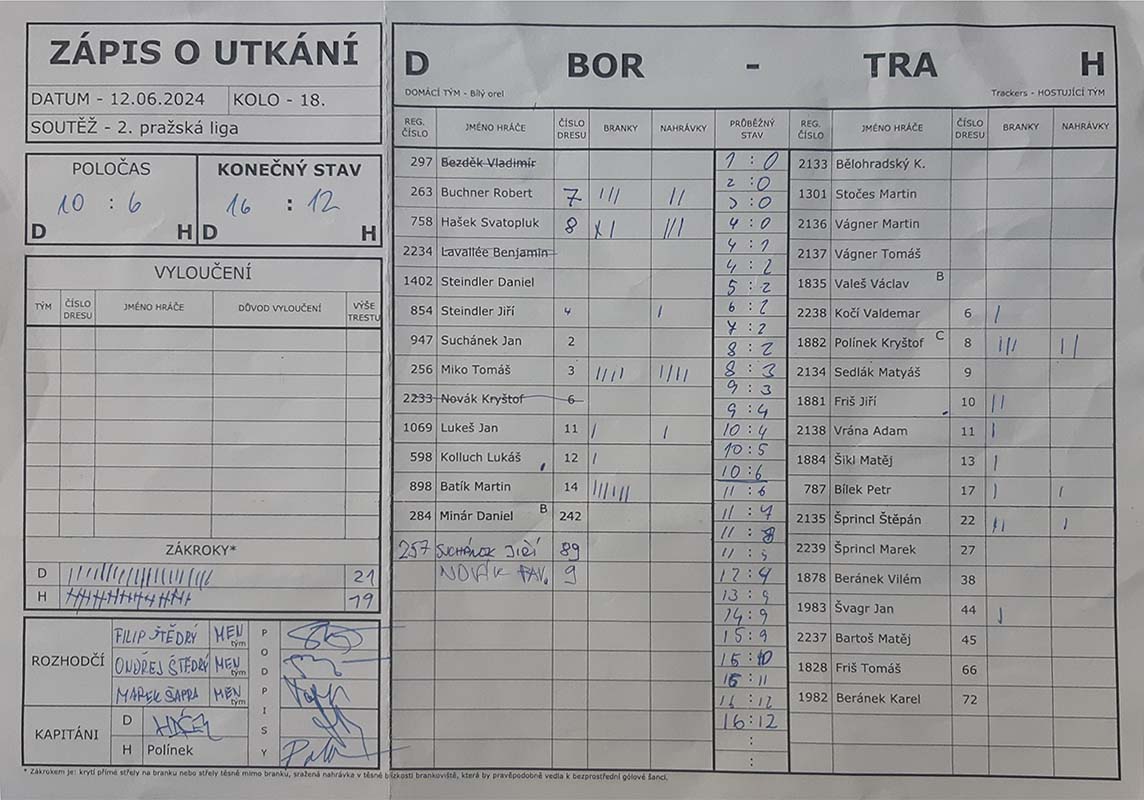 ZÁPIS O UTKÁNÍ
DATUM - 12.06.2024 KOLO - 18.
SOUTĚŽ - 2. pražská liga
POLOČAS
10 : 6
D H
KONEČNÝ STAV
16 : 12
D H
VYLOUČENÍ
TÝM ČÍSLO DRESU JMÉNO HRÁČE DŮVOD VYLOUČENÍ VÝŠE TRESTU
ZÁKROKY*
D 21
H 19
ROZHODČÍ
FILIP ŠTĚDRÝ MEN tým
ONDŘEJ ŠTĚDRÝ MEN tým
MAREK ŠAPRA MEN tým
PODPISY
KAPITÁNI
D
H Polínek
D BOR - TRA H
DOMÁCÍ TÝM - Bílý orel Trackers - HOSTUJÍCÍ TÝM
REG. ČÍSLO JMÉNO HRÁČE ČÍSLO DRESU BRANKY NAHRÁVKY
297 Bezděk Vladimír
263 Buchner Robert 7 ||| ||
758 Hašek Svatopluk 8 |||
2234 Lavallée Benjamin
1402 Steindler Daniel
854 Steindler Jiří 4 |
947 Suchánek Jan 2
256 Miko Tomáš 3 |||| ||||
2233 Novák Kryštof 6
1069 Lukeš Jan 11 | |
598 Kolluch Lukáš 12 |
898 Batík Martin 14 ||||||
284 Minár Daniel B 242
257 SUCHÁNEK JIŘÍ 89
NOVÁK PAV. 9
PRŮBĚŽNÝ STAV
1 : 0
2 : 0
3 : 0
4 : 0
4 : 1
4 : 2
5 : 2
6 : 2
7 : 2
8 : 2
8 : 3
9 : 3
9 : 4
10 : 4
10 : 5
10 : 6
11 : 6
11 : 7
11 : 8
11 : 9
12 : 9
13 : 9
14 : 9
15 : 9
15 : 10
15 : 11
16 : 12
:
:
REG. ČÍSLO JMÉNO HRÁČE ČÍSLO DRESU BRANKY NAHRÁVKY
2133 Bělohradský K.
1301 Stočes Martin
2136 Vágner Martin
2137 Vágner Tomáš
1835 Valeš Václav B
2238 Kočí Valdemar 6 |
1882 Polínek Kryštof C 8 ||| ||
2134 Sedlák Matyáš 9
1881 Friš Jiří 10 ||
2138 Vrána Adam 11 |
1884 Šikl Matěj 13 |
787 Bílek Petr 17 | |
2135 Šprincl Štěpán 22 || |
2239 Šprincl Marek 27
1878 Beránek Vilém 38
1983 Švagr Jan 44 |
2237 Bartoš Matěj 45
1828 Friš Tomáš 66
1982 Beránek Karel 72
* Zákrokem je: krytí přímé střely na branku nebo střely těsně mimo branku, sražená nahrávka v těsné blízkosti brankoviště, která by pravěpodobně vedla k bezprostřední gólové šanci.